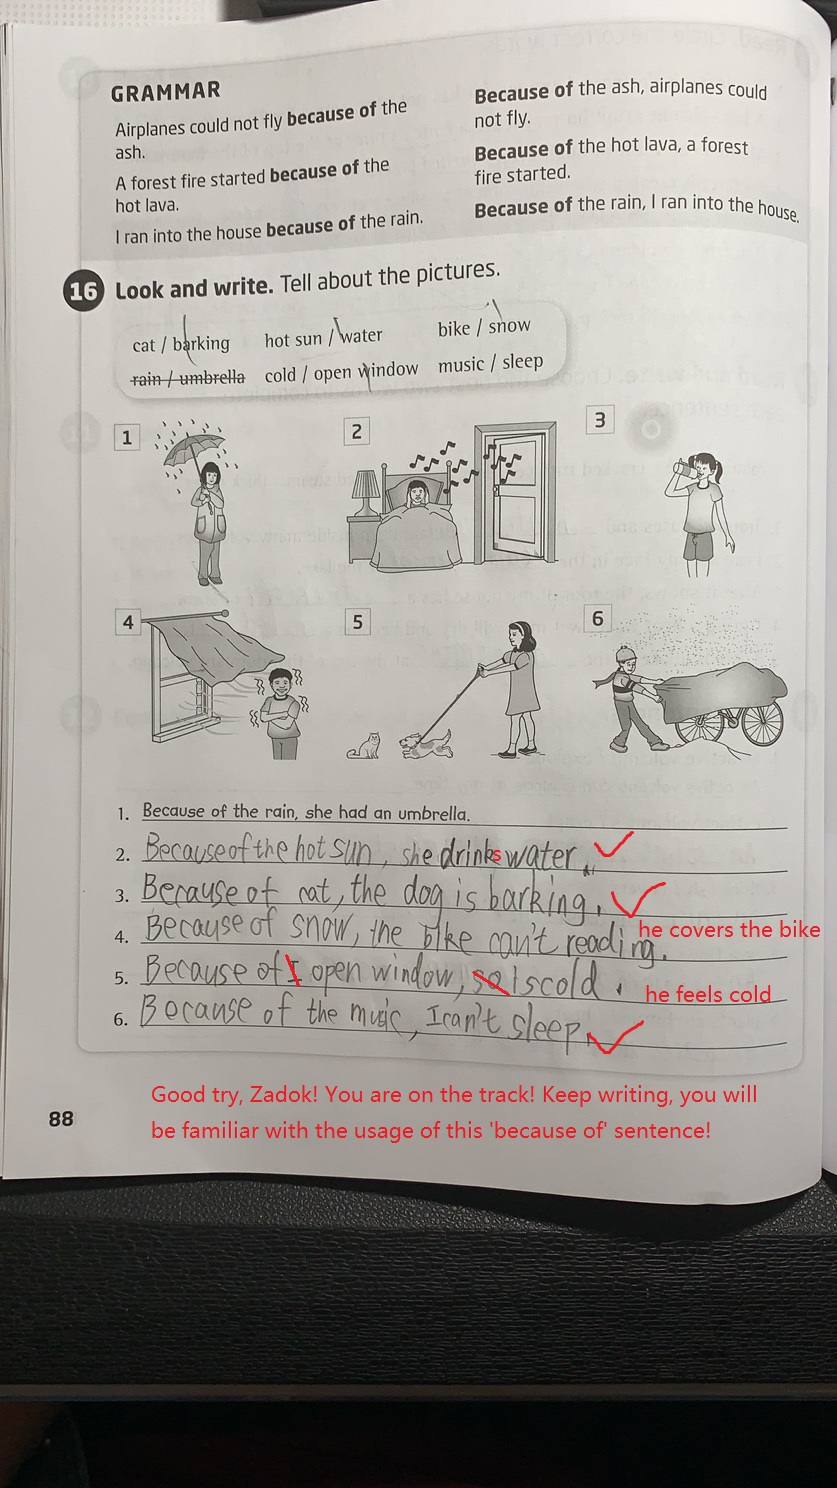 GRAMMAR
Airplanes could not fly because of the
ash.
A forest fire started because of the
hot lava.
I ran into the house because of the rain.
Because of the ash, airplanes could
not fly.
Because of the hot lava, a forest
fire started.
Because of the rain, I ran into the house.
16 Look and write. Tell about the pictures.
cat / barking hot sun / water bike / snow
rain / umbrella cold / open window music / sleep
1 2 3
4 5 6
1. Because of the rain, she had an umbrella.
2. Because of the hot sun, she drinks water.
3. Because of cat, the dog is barking.
he covers the bike
4. Because of snow, the bike can't reading.
5. Because of I open window, so I scold.
he feels cold
6. Because of the music, I can't sleep.
Good try, Zadok! You are on the track! Keep writing, you will
be familiar with the usage of this 'because of' sentence!
88